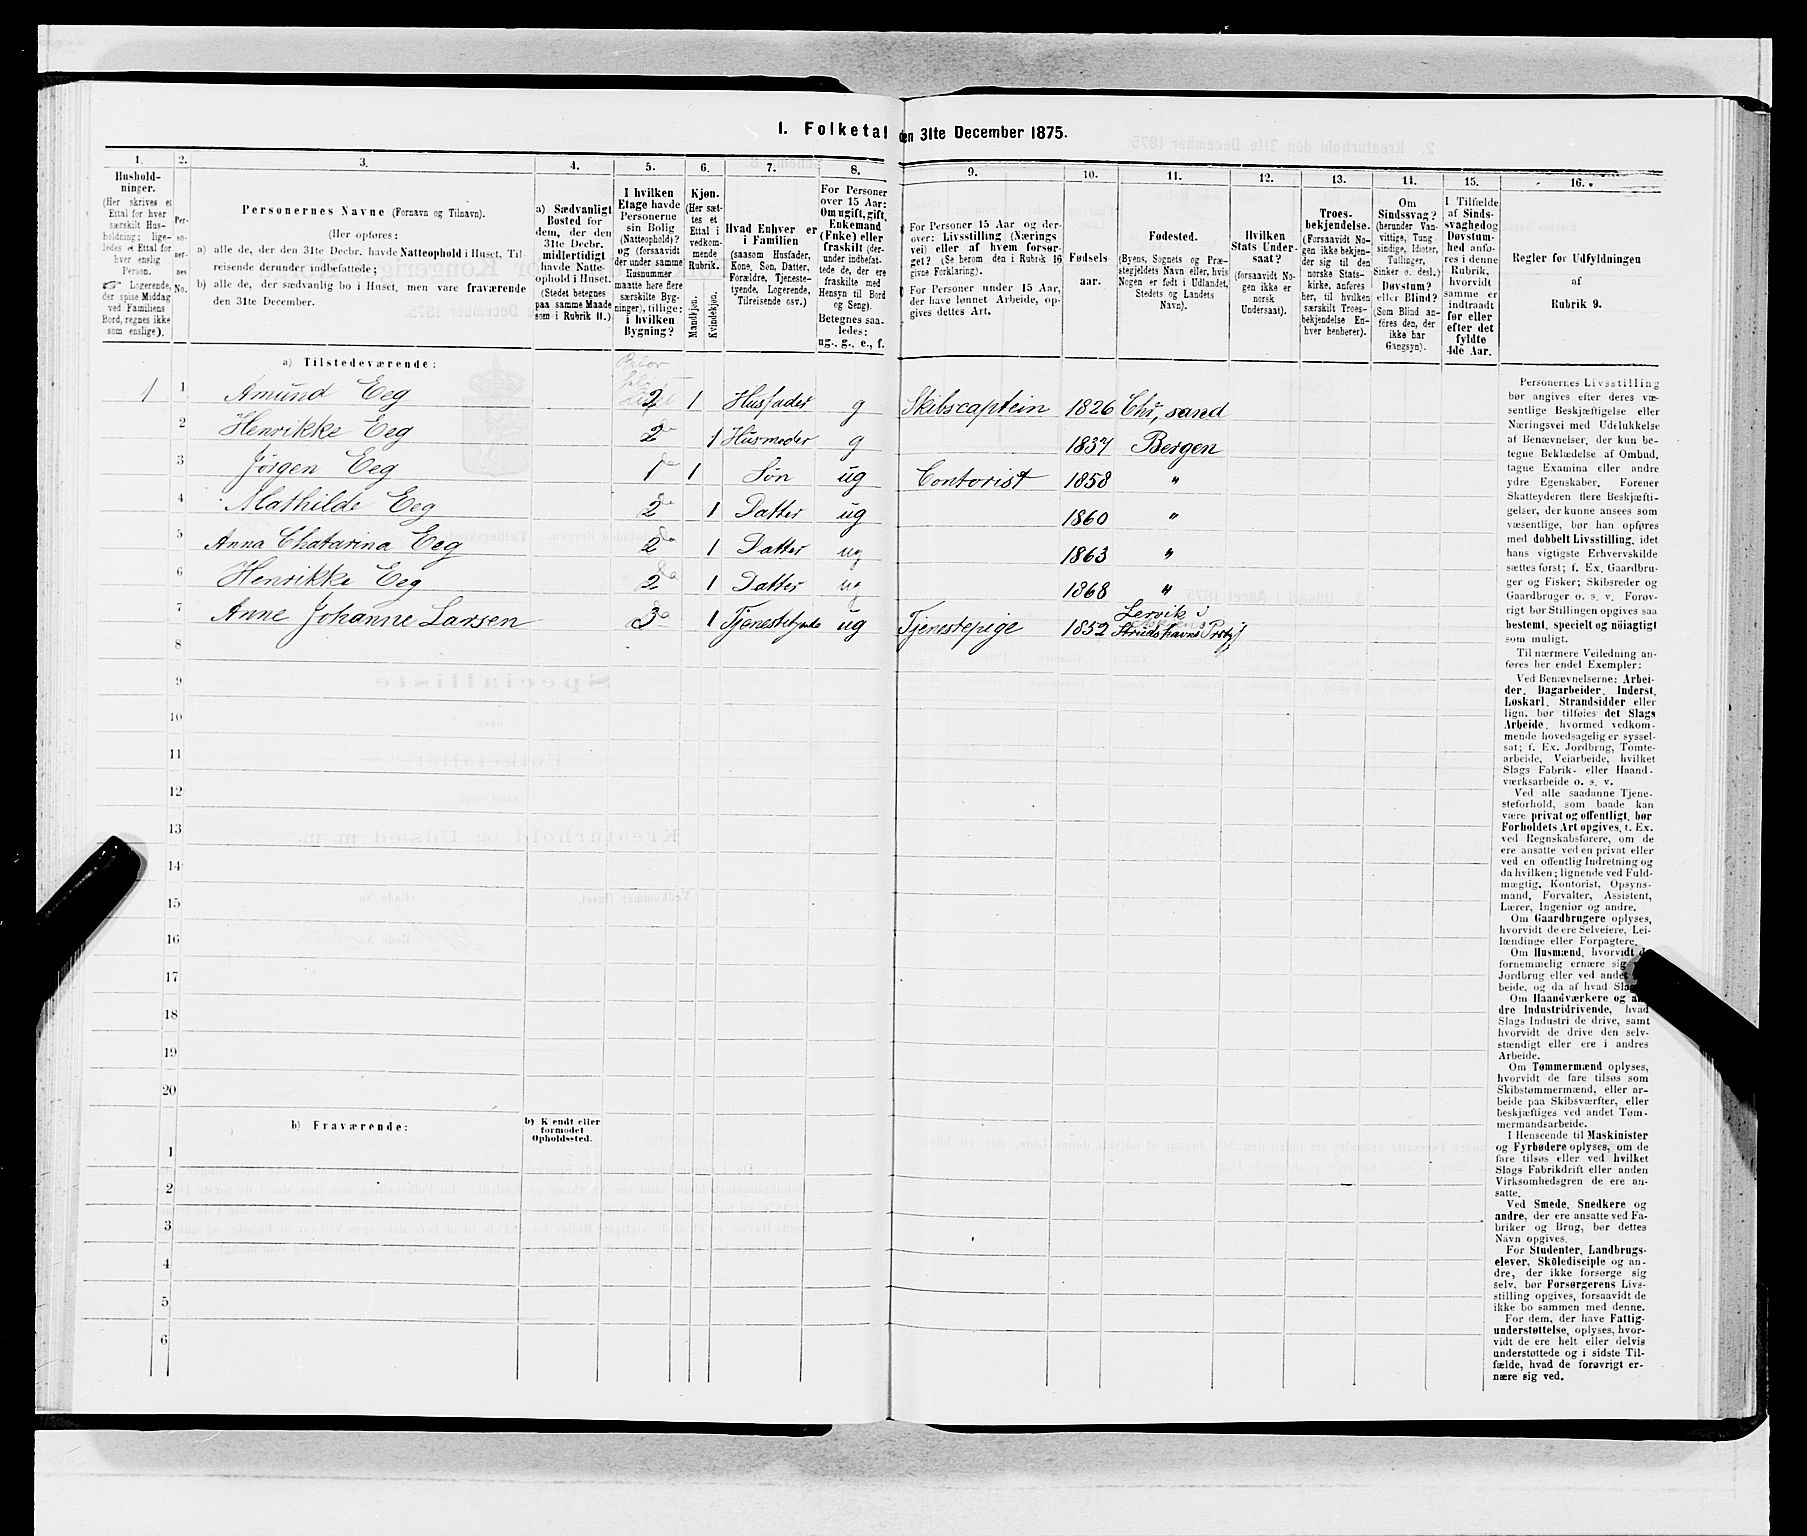 1. Folketal den 31te December 1875.
1. 2. 3. 4. 5. 6. 7. 8. 9. 10. 11. 12. 13. 14. 15. 16.
Husholdninger.
(Her skrives et
Ettal for hver
særskilt Husholdning; ligeledes et Ettal for
hver enslig
Person.
Logerende,
der spise Middag
ved Familiens
Bord, regnes ikke
som enslige).
Personernes No.
Personernes Navne (Fornavn og Tilnavn).
(Her opføres:
a) alle de, der den 31te Decbr. havde Natteophold i Huset, Tilreisende derunder indbefattede;
b) alle de, der sædvanlig bo i Huset, men vare fraværende
den 31te December.
a) Sædvanligt
Bosted for
dem, der den
31te Decbr.
midlertidigt
havde Natteophold i Huset.
(Stedet betegnes
paa samme Maade
som i Rubrik 11.)
I hvilken
Etage havde
Personerne
sin Bolig
(Natteophold)?
og (forsaavidt
der under samme
Husnummer
maatte høre flere
særskilte Bygninger), tillige:
i hvilken
Bygning?
Kjøn.
(Her sættes et
Ettal i
vedkommende
Rubrik.
Mandkjøn.
Kvindekjøn.
Hvad Enhver er
i Familien
(saasom Husfader,
Kone, Søn, Datter,
Forældre, Tjenestetyende, Logerende,
Tilreisende osv.)
For Personer
over 15 Aar:
Om ugift, gift,
Enkemand
(Enke) eller
fraskilt (derunder indbefattede de, der ere
fraskilte med
Hensyn til Bord
og Seng).
Betegnes saaledes:
ug., g., e., f.
For Personer 15 Aar og derover: Livsstilling (Næringsvei) eller af hvem forsørget? (Se herom den i Rubrik 16
givne Forklaring).
For Personer under 15 Aar,
der have lønnet Arbeide, opgives dettes Art.
Fødselsaar.
Fødested.
(Byens, Sognets og Præstegjeldets Navn eller, hvis
Nogen er født i Udlandet,
Stedets og Landets
Navn).
Hvilken
Stats Undersaat?
(forsaavidt Nogen ikke er
norsk
Undersaat).
Troesbekjendelse.
(Forsaavidt Nogen ikke bekjender sig til den
norske Statskirke, anføres
her, til hvilken
særskilt Troesbekjendelse Enhver henhører).
Om
Sindssvag?
(herunder Vanvittige, Tungsindige, Idioter,
Tullinger,
Sinker o. desl.)
Døvstum?
eller Blind?
(Som Blind anføres den, der
ikke har
Gangsyn).
I Tilfælde
af Sindssvaghed og
Døvstumhed anføres i denne
Rubrik,
hvorvidt
samme er
indtraadt
før eller
efter det
fyldte
4de Aar.
Regler for Udfyldningen
af
Rubrik 9.
a) Tilstedeværende:
1 1 Amund Eeg 2 1 Husfader g Skibscaptein 1826 Chr,sand
2 Henrikke Eeg 2 do 1 Husmoder g 1837 Bergen
3 Jørgen Eeg 1 do 1 Søn ug Contorist 1858 "
4 Mathilde Eeg 2 do 1 Datter ug 1860 "
5 Anna Chatarina Eeg 2 do 1 Datter ug 1863 "
6 Henrikke Eeg 2 do 1 Datter ug 1868 "
7 Anne Johanne Larsen 3 do 1 Tjenestetyende ug Tjenestepige 1852 Lervik i
8
9
10
11
12
13
14
15
16
17
18
19
20
b) Fraværende:
b) Kjendt eller
formodet
Opholdssted.
1
2
3
4
5
6
Personernes Livsstilling
bør angives efter deres væsentlige Beskjæftigelse eller
Næringsvei med Udelukkelse
af Benævnelser, der kun betegne Beklædelse af Ombud,
tagne Examina eller andre
ydre Egenskaber. Forener
Skatteyderen flere Beskjæftigelser, der kunne ansees som
væsentlige, bør han opføres
med dobbelt Livsstilling, idet
hans vigtigste Erhvervskilde
sættes først; f. Ex. Gaardbruger og Fisker; Skibsreder og
Gaardbruger o. s. v. Forøvrigt bør Stillingen opgives saa
bestemt, specielt og nöiagtigt
som muligt.
Til nærmere Veiledning anføres her endel Exempler:
Ved Benævnelserne: Arbeider, Dagarbeider, Inderst,
Løskarl, Strandsidder eller
lign. bør tilføies det Slags
Arbeide, hvormed vedkommende hovedsagelig er sysselsat; f. Ex. Jordbrug, Tomtearbeide, Veiarbeide, hvilket
Slags Fabrik- eller Haandværksarbeide o. s. v.
Ved alle saadanne Tjenesteforhold, som baade kan
være privat og offentligt, bør
Forholdets Art opgives, t. Ex.
ved Regnskabsførere, om de
ere ansatte ved en privat eller
ved en offentlig Indretning og
da hvilken; lignende ved Fuldmægtig, Kontorist, Opsynsmand, Forvalter, Assistent,
Lærer, Ingeniør og andre.
Om Gaardbrugere oplyses,
hvorvidt de ere Selveiere, Leilændinge eller Forpagtere.
Om Husmænd, hvorvidt de
fornemmelig ernære sig
Jordbrug eller ved andet
beide, og da af hvad
Om Haandværkere og andre Industridrivende, hvad
Slags Industri de drive, samt
hvorvidt de drive den selvstændigt eller ere i andres
Arbeide.
Om Tømmermænd oplyses,
hvorvidt de fare tilsøs som
Skibstømmermænd, eller arbeide paa Skibsværfter, eller
beskjæftiges ved andet Tømmermandsarbeide.
I Henseende til Maskinister
og Fyrbødere oplyses, om de
fare tilsøs eller ved hvilket
Slags Fabrikdrift eller anden
Virksomhedsgren de ere ansatte.
Ved Smede, Snedkere og
andre, der ere ansatte ved Fabriker og Brug, bør dettes
Navn opgives.
For Studenter, Landbrugselever, Skoledisciple og andre, der ikke forsørge sig
selv, bør Forsørgerens Livsstilling opgives, forsaavidt de
ikke bo sammen med denne.
For dem, der have Fattigunderstøttelse, oplyses, hvorvidt de ere helt eller delvis
understøttede og i sidste Tilfælde, hvad de forøvrigt ernære sig ved.